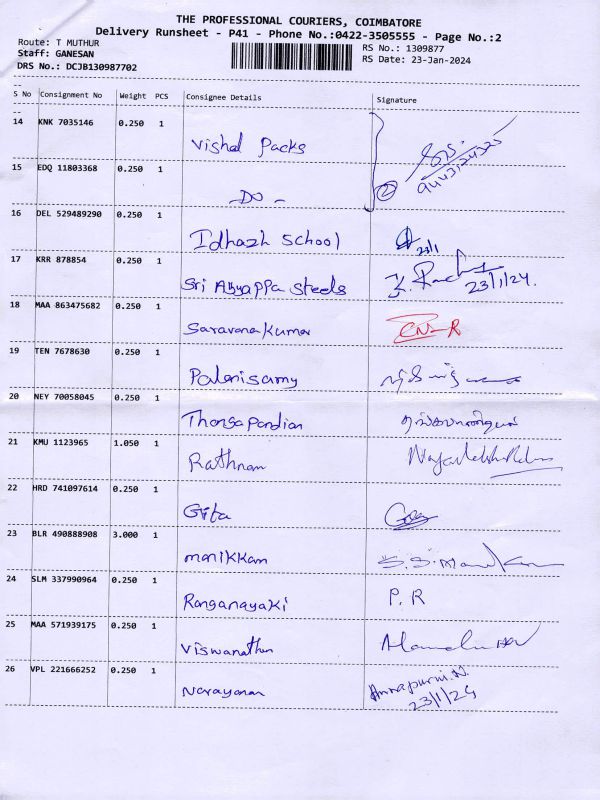 THE PROFESSIONAL COURIERS, COIMBATORE
Delivery Runsheet - P41 - Phone No.:0422-3505555 - Page No.:2
Route: T MUTHUR RS No.: 1309877
Staff: GANESAN RS Date: 23-Jan-2024
DRS No.: DCJB130987702
S No Consignment No Weight PCS Consignee Details Signature
14 KNK 7035146 0.250 1 Vishal Packs
9443124325
15 EDQ 11803368 0.250 1 - Do - 2
16 DEL 529489290 0.250 1 Idhazh School 23/1
17 KRR 878854 0.250 1 Sri Ayyappa Steels 23/1/24.
18 MAA 863475682 0.250 1 Saravana Kumar
19 TEN 7678630 0.250 1 Palanisamy
20 NEY 70058045 0.250 1 Thangapandian தங்கபாண்டியன்
21 KMU 1123965 1.050 1 Rathnam
22 HRD 741097614 0.250 1 Gita
23 BLR 490888908 3.000 1 manikkam
24 SLM 337990964 0.250 1 Ranganayaki P. R
25 MAA 571939175 0.250 1 Viswanathan
26 VPL 221666252 0.250 1 Narayanan Annapurni. N.
23/1/24